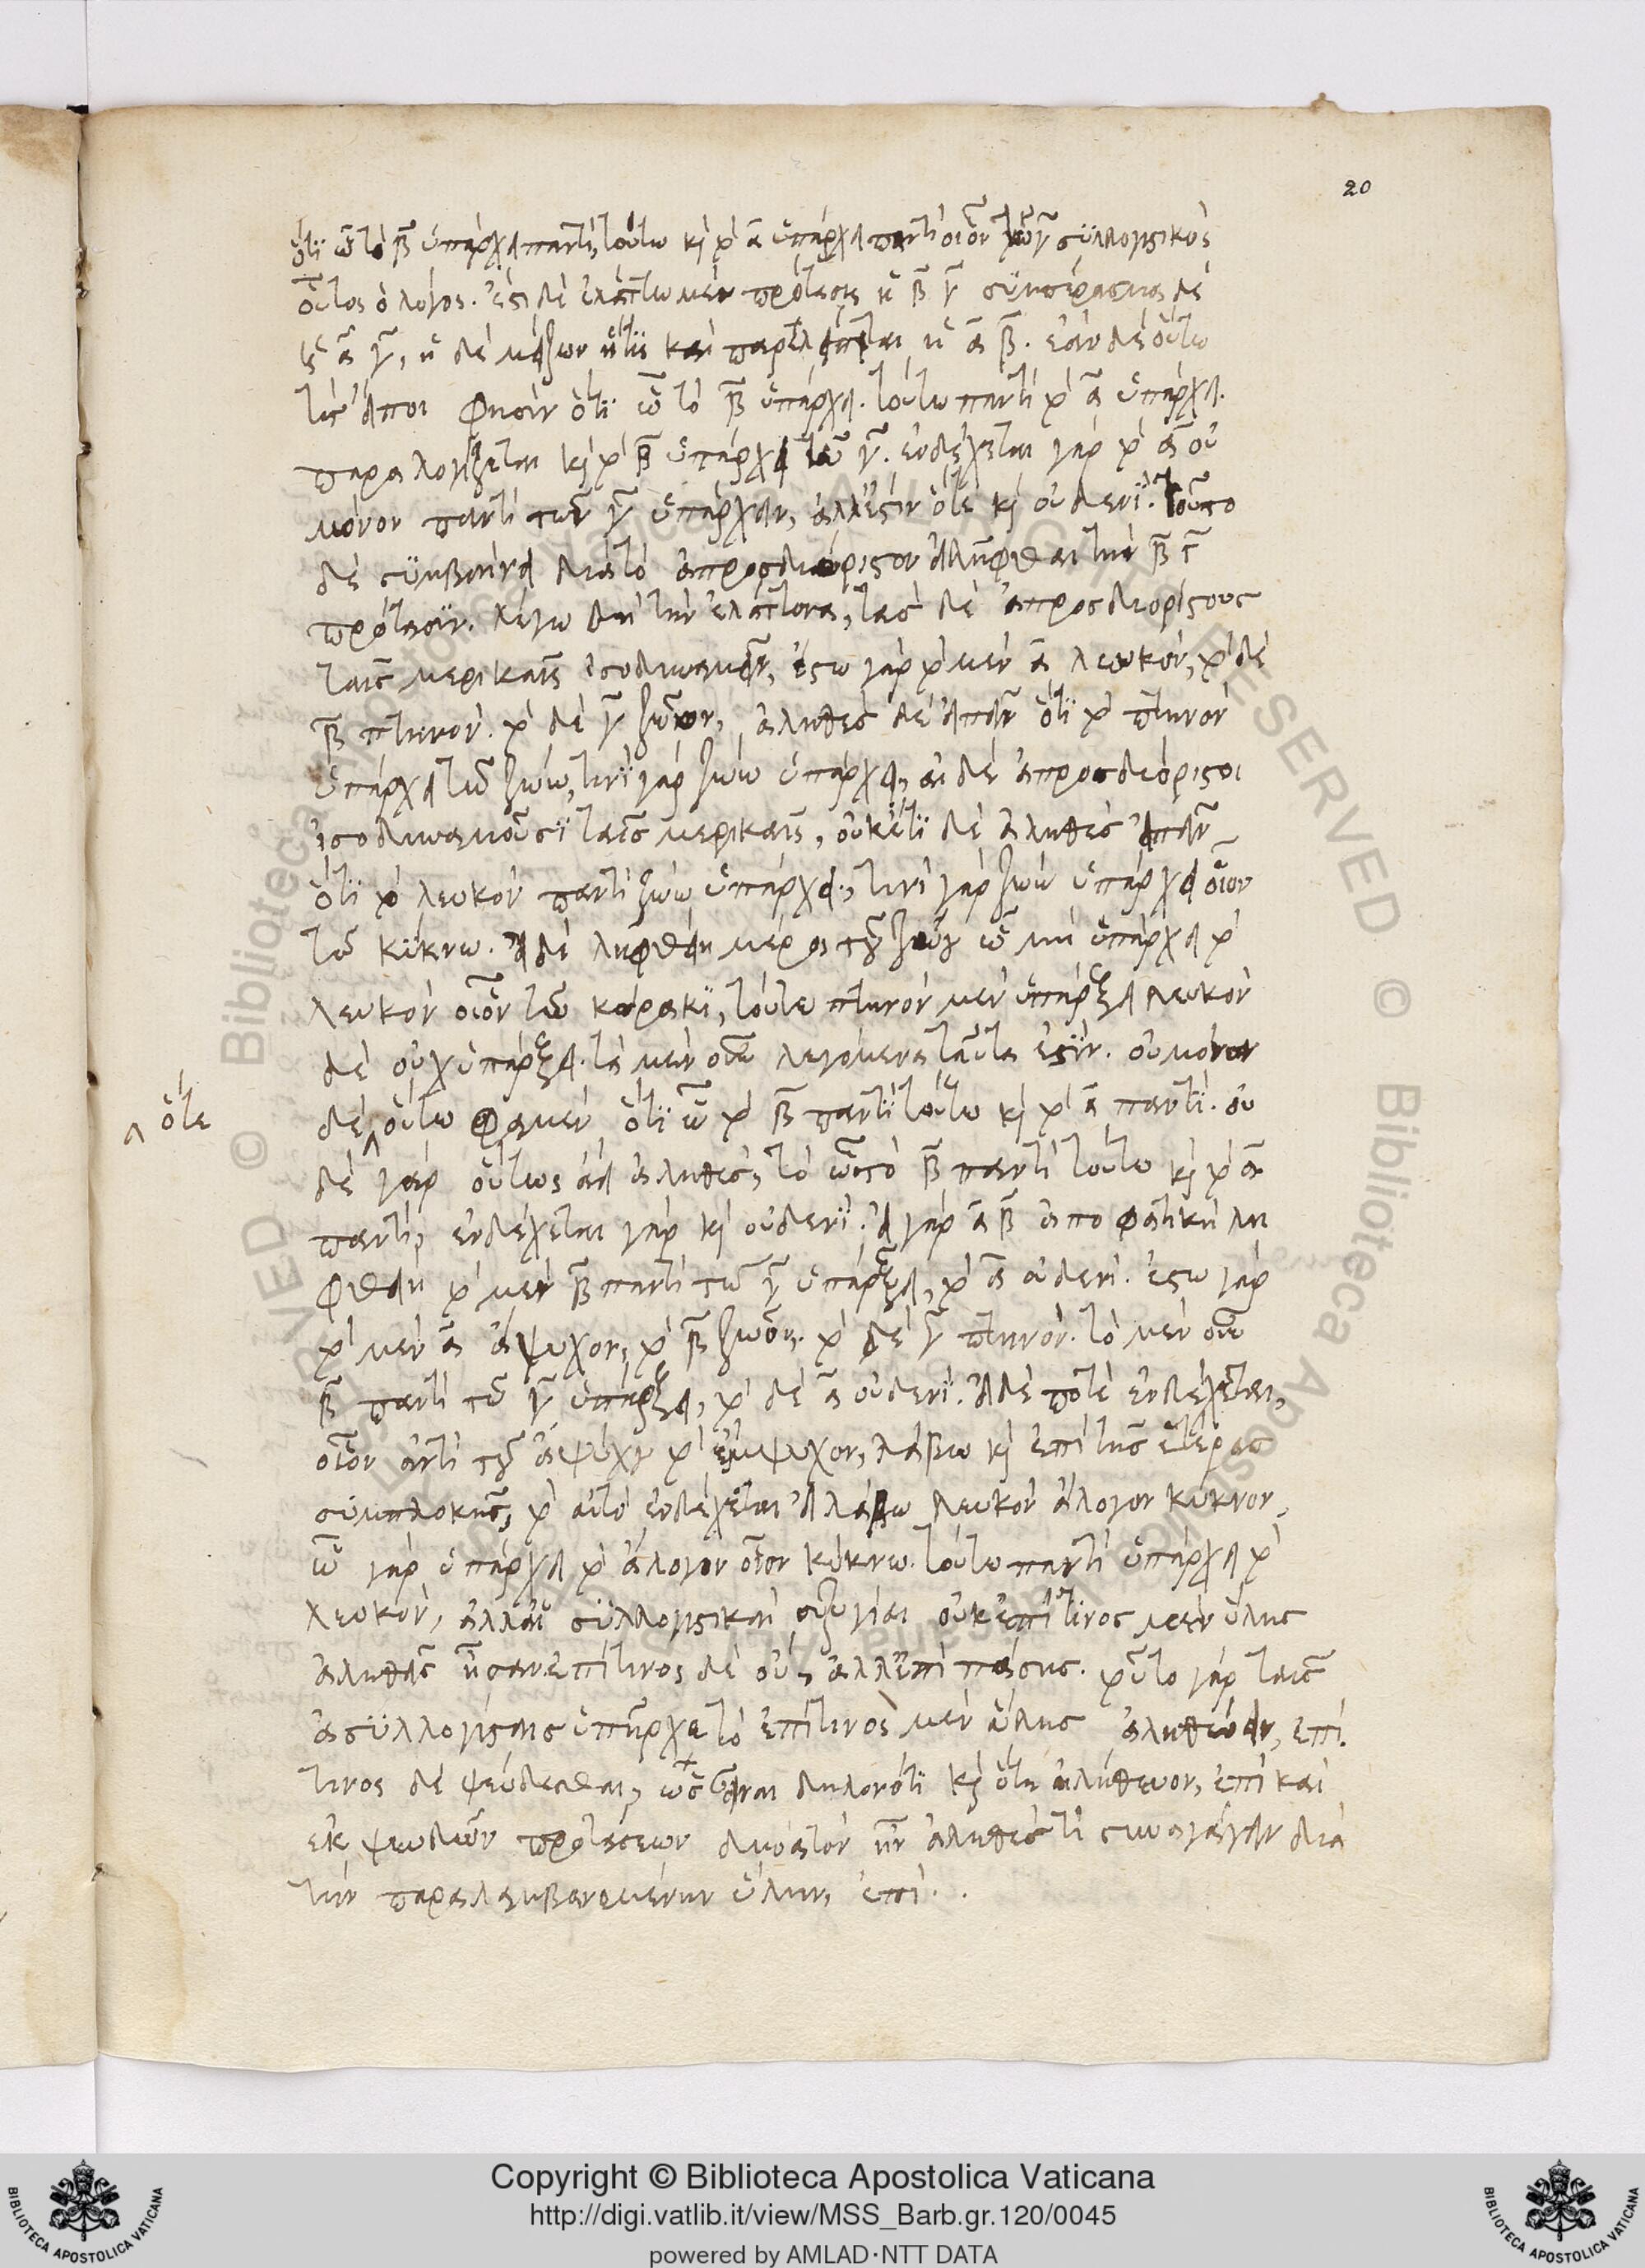 20
ὅτι ὧ τὸ β̅ ὑπάρχει παντὶ, τούτω κ̀ τὸ α̅ ὑπάρχει παντὶ οἷον τῶ γ̅ συλλογιστικὸς
οὗτος ὁ λόγος. ἔστι δὲ ἐλάττω μὲν πρότασις ἡ β̅ γ̅ συμπέρασμα δὲ
α̅ γ̅, ἡ δὲ μείζων ἥτις καὶ παρέλειπται ἡ α̅ β̅. ἐὰν δὲ οὕτω
τὶς εἴποι φησὶν ὅτι ὧ τὸ β̅ ὑπάρχει. τούτω παντὶ τὸ α̅ ὑπάρχει.
παραλογίζεται κ̀ τὸ β̅ ὑπάρχει τῶ γ̅. ἐνδέχεται γὰρ τὸ α̅ οὐ
μόνον παντὶ τῶν γ̅ ὑπάρχειν, ἀλλ' ἔστιν ὅτε κ̀ οὐδενί. τοῦτο
δὲ συμβαίνει διὰ τὸ ἀπροσδιόριστον εἰλῆφθαι τὴν β̅ γ̅
πρότασιν. λέγω δὴ τὴν ἐλάττονα, τὰς δὲ ἀπροσδιορίστους
ταῖς μερικαῖς ἰσοδυναμεῖν, ἔστω γὰρ τὸ μὲν α̅ λευκὸν, τὸ δὲ
β̅ πτηνόν. τὸ δὲ γ̅ ζῶον, ἀληθὲς δὲ εἰπεῖν ὅτι τὸ πτηνὸν
ὑπάρχει τῶ ζώω, τινὶ γὰρ ζώω ὑπάρχει, αἱ δὲ ἀπροσδιόριστοι
ἰσοδυναμοῦσι ταῖς μερικαῖς, οὐκέτι δὲ ἀληθὲς εἰπεῖν
ὅτι τὸ λευκὸν παντὶ ζώω ὑπάρχει, τινὶ γὰρ ζώω ὑπάρχει οἷον
τῶ κύκνω. εἰ δὲ ληφθείη μέρος τοῦ ζώου ὧ μὴ ὑπάρχει τὸ
λευκὸν οἷον τῶ κόρακι, τούτω πτηνὸν μὲν ὑπάρξει λευκὸν
δὲ οὐχ ὑπάρξει. τὰ μὲν οὖν λεγόμενα ταῦτα ἐστίν. οὐ μόνον
δὲ ^ οὕτω φαμὲν ὅτι ὧ τὸ β̅ παντὶ τούτω κ̀ τὸ α̅ παντί. οὐ
^ ὅτε
δὲ γὰρ οὕτως ἀεὶ ἀληθὲς, τὸ ὧ τὸ β̅ παντὶ τούτω κ̀ τὸ α̅
παντὶ, ἐνδέχεται γὰρ κ̀ οὐδενί. εἰ γὰρ α̅ β̅ ἀποφατικὴ λη
φθείη τὸ μὲν β̅ παντὶ τῶ γ̅ ὑπάρξει, τὸ α̅ οὐδενί. ἔστω γὰρ
τὸ μὲν α̅ ἄψυχον, τὸ β̅ ζῶον. τὸ δὲ γ̅ πτηνόν. τὸ μὲν οὖν
β̅ παντὶ τῶ γ̅ ὑπάρξει, τὸ δὲ α̅ οὐδενί. εἰ δὲ ποτὲ ἐνδέχεται,
οἷον ἀντὶ τοῦ ἀψύχου τὸ ἔμψυχον, λάβω κ̀ ἐπὶ τῆς ἑτέρας
συμπλοκῆς, τὸ αὐτὸ ἐνδέχεται εἰ λάβω λευκὸν ἄλογον κύκνον,
ὧ γὰρ ὑπάρχει τὸ ἄλογον οἷον κύκνω. τούτω παντὶ ὑπάρχει τὸ
λευκὸν, ἀλλ' αἱ συλλογιστικαὶ συζυγίαι οὐκ ἐπὶ τινὸς μὲν ὕλης
ἀληθεῖς ἦσαν ἐπὶ τινος δὲ οὐ, ἀλλ' ἐπὶ πάσης. τοῦτο γὰρ ταῖς
ἀσυλλογίσταις ὑπῆρχε τὸ ἐπὶ τινὸς μὲν ὕλης ἀληθεύειν, ἐπὶ
τινος δὲ ψεύδεσθαι, δηλονότι κ̀ ἀλήθευον, ἐπὶ καὶ
ἐκ ψευδῶν προτάσεων δυνατὸν ἦν ἀληθές τι συναγαγεῖν διὰ
τὴν παραλαμβανομένην ὕλην, ἐπὶ.
Copyright © Biblioteca Apostolica Vaticana
http://digi.vatlib.it/view/MSS_Barb.gr.120/0045
powered by AMLAD·NTT DATA